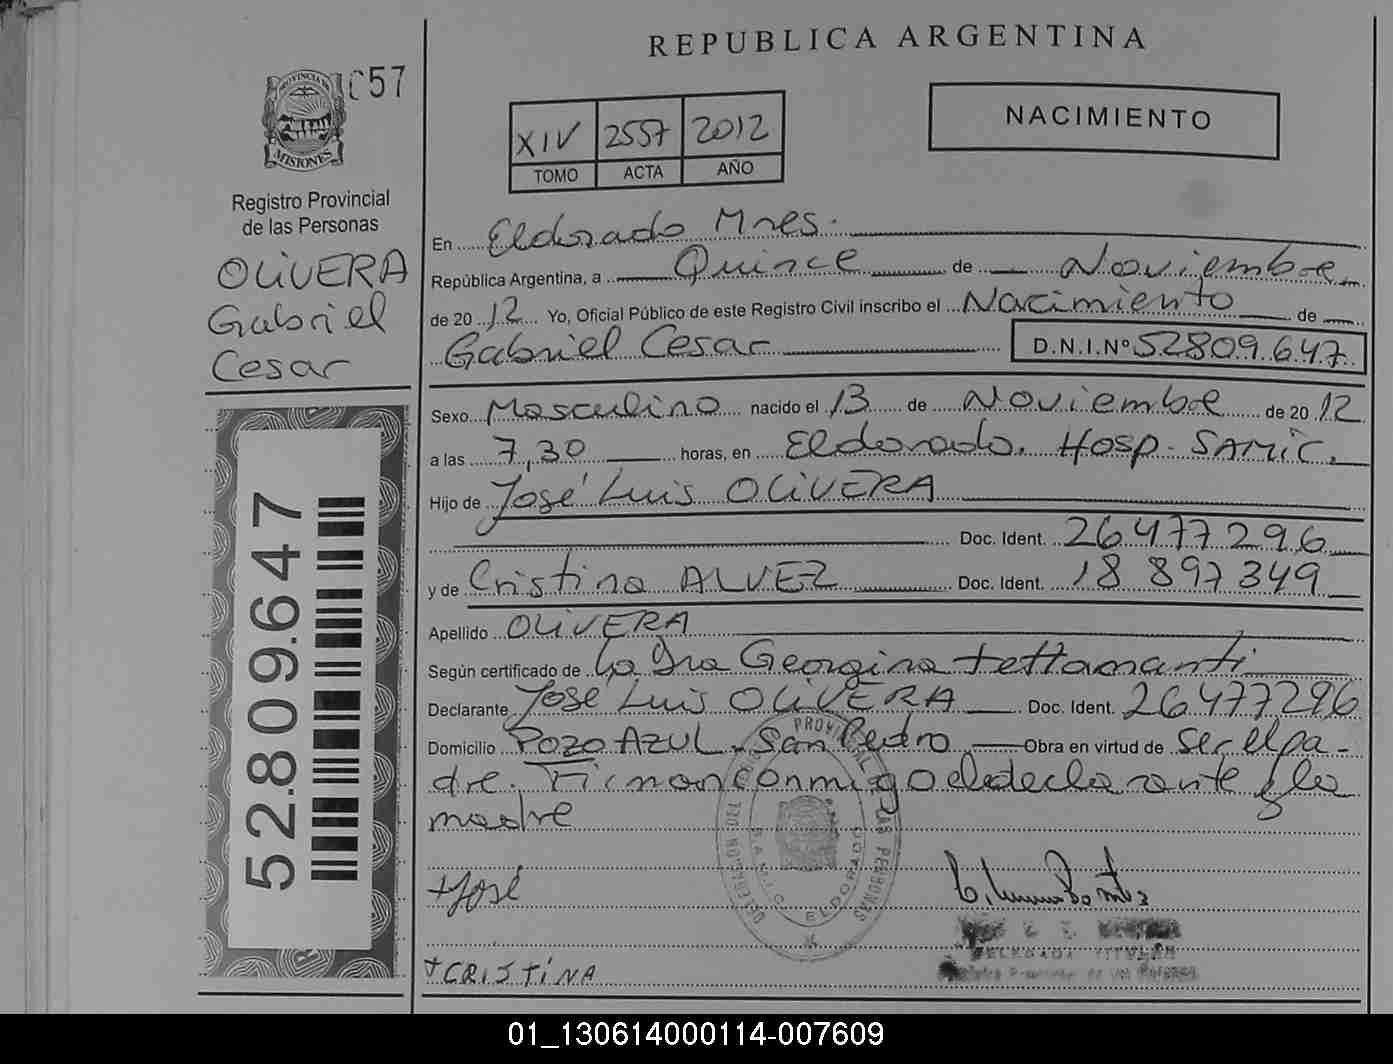 REPUBLICA ARGENTINA
057
PROVINCIA DE
MISIONES
Registro Provincial
de las Personas
OLIVERA
Gabriel
Cesar
52.809.647
XIV 2557 2012
TOMO ACTA AÑO
NACIMIENTO
En Eldorado Mnes.
República Argentina, a Quince de Noviembre
de 20 12 Yo, Oficial Público de este Registro Civil inscribo el Nacimiento de
Gabriel Cesar D.N.I.Nº 52809.647
Sexo Masculino nacido el 13 de Noviembre de 20 12
a las 7,30 horas, en Eldorado. Hosp. SAMIC.
Hijo de José Luis OLIVERA
Doc. Ident. 26477296
y de Cristina ALVEZ Doc. Ident. 18 897349
Apellido OLIVERA
Según certificado de la Dra Georgina tettamanti
Declarante José Luis OLIVERA Doc. Ident. 26477296
Domicilio POZO AZUL. San Pedro Obra en virtud de ser el pa-
dre. Firman conmigo el declarante y la
madre
+José
+CRISTINA
S.A.M.I.C. ELDORADO
DELEGADA TITULAR
01_130614000114-007609